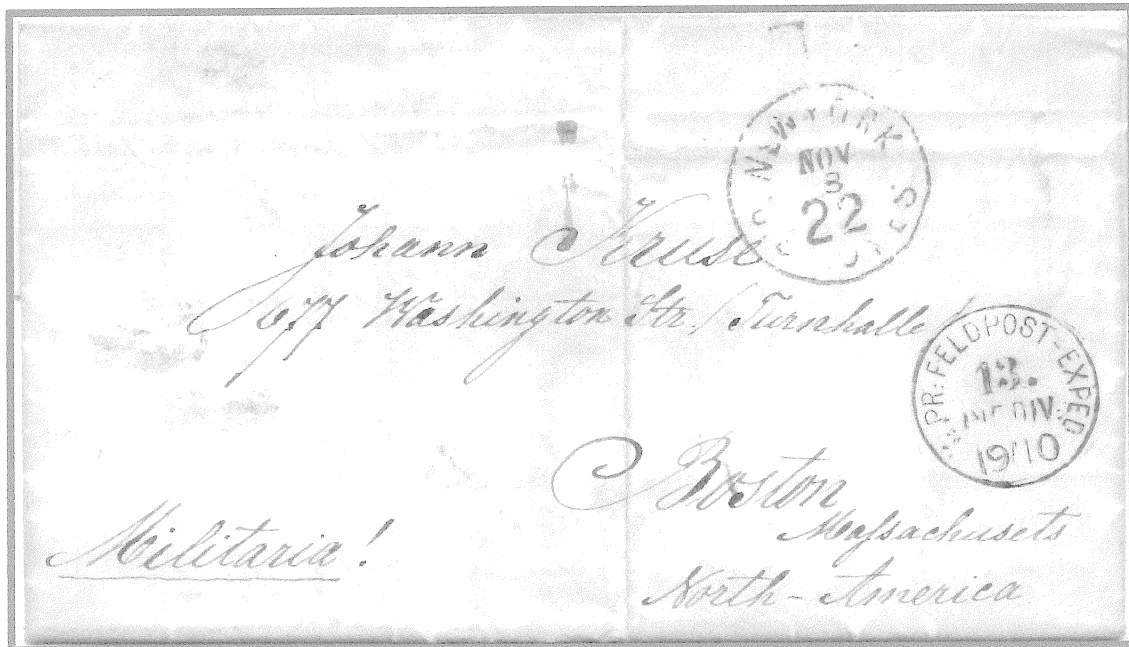 NEW YORK
NOV
3
22
CTS
Johann Kruse
677 Washington Str. (Turnhalle)
K: PR: FELDPOST-EXPED
13.
INF. DIV.
19/10
Boston
Massachusets
North-America
Militaria!